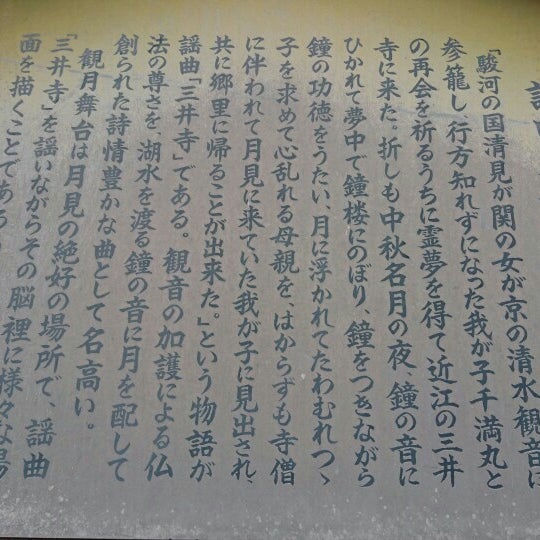 「駿河の国清見が関の女が京の清水観音に
参籠し、行方知れずになった我が子千満丸と
の再会を祈るうちに霊夢を得て近江の三井
寺に来た。折しも中秋名月の夜、鐘の音に
ひかれて夢中で鐘楼にのぼり、鐘をつきながら
鐘の功徳をうたい、月に浮かれてたわむれつゝ
子を求めて心乱れる母親を、はからずも寺僧
に伴われて月見に来ていた我が子に見出され、
共に郷里に帰ることが出来た。」という物語が
謡曲「三井寺」である。観音の加護による仏
法の尊さを、湖水を渡る鐘の音に月を配して
創られた詩情豊かな曲として名高い。
観月舞台は月見の絶好の場所で、謡曲
「三井寺」を謡いながらその脳裡に様々な場
面を描くことである